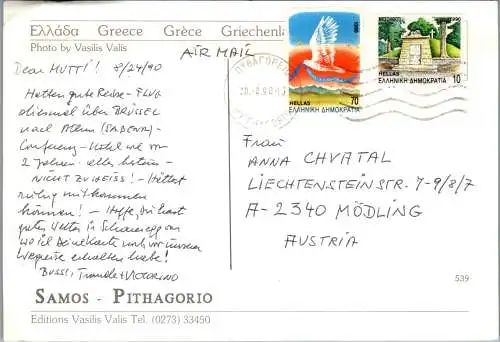 Ελλάδα Greece Grèce Griechenla
Photo by Vasilis Valis
AIR MAIL
Dear MUTTI! 8/24/90
Hatten gute Reise - FLUG
diesmal über BRÜSSEL
nach Athen (SABENA) -
Conference - Hotel wie vor
2 Jahren. alles bestens -
NICHT ZU HEISS! - Hättest
ruhig mitkommen
können! - Hoffe, Du hast
gutes Wetter in
wo ich Deine Karte noch vor unserer
Wegreise erhalten habe!
Bussi, Traudl + VICTORINO
SAMOS - PITHAGORIO
Editions Vasilis Valis Tel. (0273) 33450
1990
HELLAS 70
ΕΛΛΗΝΙΚΗ ΔΗΜΟΚΡΑΤΙΑ
HELLAS 10
ΕΛΛΗΝΙΚΗ ΔΗΜΟΚΡΑΤΙΑ
Frau
ANNA CHVATAL
LIECHTENSTEINSTR. 7-9/8/7
A-2340 MÖDLING
AUSTRIA
539